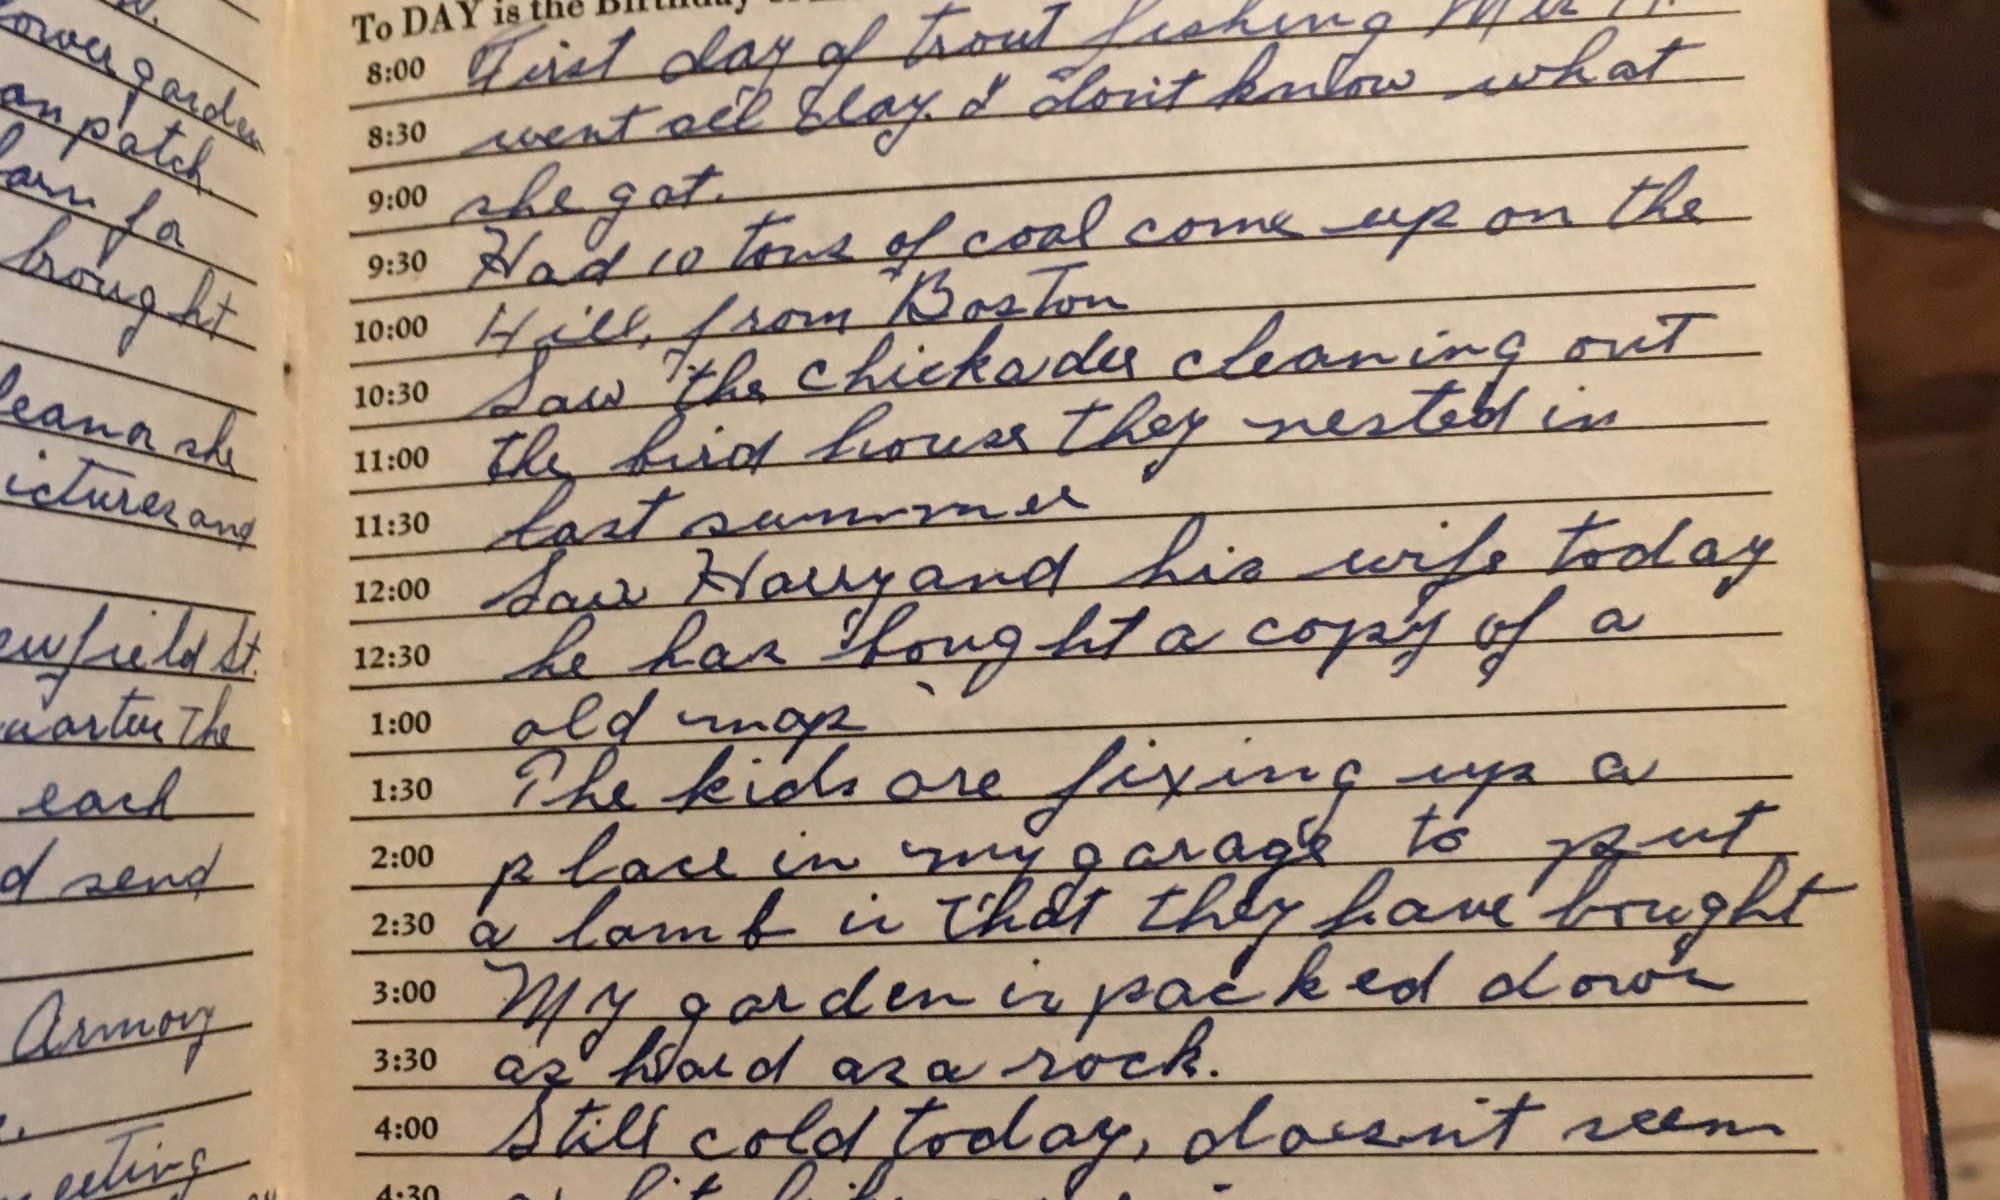 ower garden
an patch.
arn for
brought
leanor she
ictures and
ewfield St.
quarter the
each
d send
Armory
eeting
To DAY is the Birthday
8:00 First day of trout fishing
8:30 went all day. I don't know what
9:00 she got.
9:30 Had 10 tons of coal come up on the
10:00 Hill, from Boston
10:30 Saw the chickadee cleaning out
11:00 the bird house they nested in
11:30 last summer
12:00 Saw Harry and his wife today
12:30 he has bought a copy of a
1:00 old map
1:30 The kids are fixing up a
2:00 place in my garage to put
2:30 a lamb in that they have bought
3:00 My garden is packed down
3:30 as hard as a rock.
4:00 Still cold today, doesn't seem
4:30